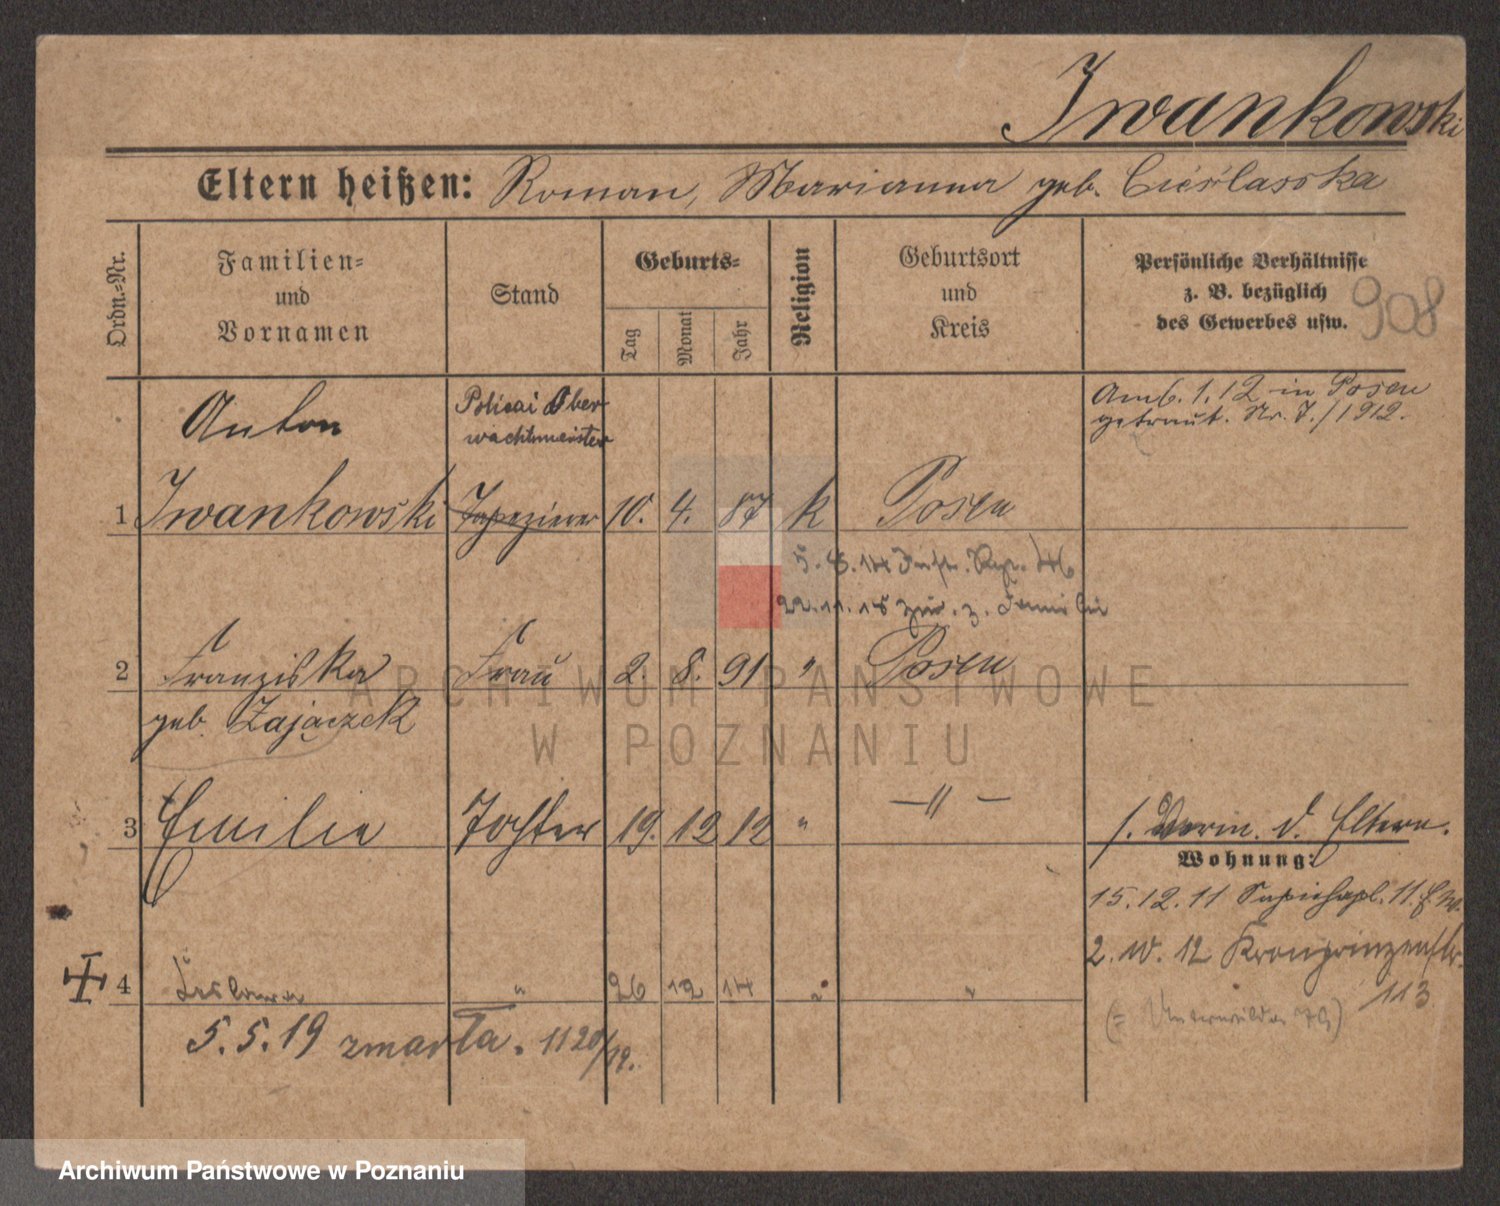 Iwankowski
Eltern heißen: Roman, Marianna geb. Cieślasska
Ordn.-Nr.
Familien-
und
Vornamen
Stand
Geburts-
Tag
Monat
Jahr
Religion
Geburtsort
und
Kreis
Persönliche Verhältnisse
z. B. bezüglich
des Gewerbes usw.
908
Anton
Polizai Ober
wachtmeister
Am 6. 1. 12 in Posen
getraut. Nr. 7./1912.
1 Iwankowski Tapezierer 10. 4. 87 k Posen
5. 8. 14 Inft. Rgt. 46
22. 11. 18 zur. z. Familie
2 Franziska Frau 2. 8. 91 " Posen
geb. Zajączek
3 Emilie Tochter 19. 12 12 " —"—
s. Verm. d. Eltern.
Wohnung:
15. 12. 11 Sapiehapl. 11.
2. 10. 12 Kronprinzenstr.
113
4 " 26 12 14 " "
5. 5. 19 zmarła. 1120/19.
ARCHIWUM PAŃSTWOWE
W POZNANIU
Archiwum Państwowe w Poznaniu